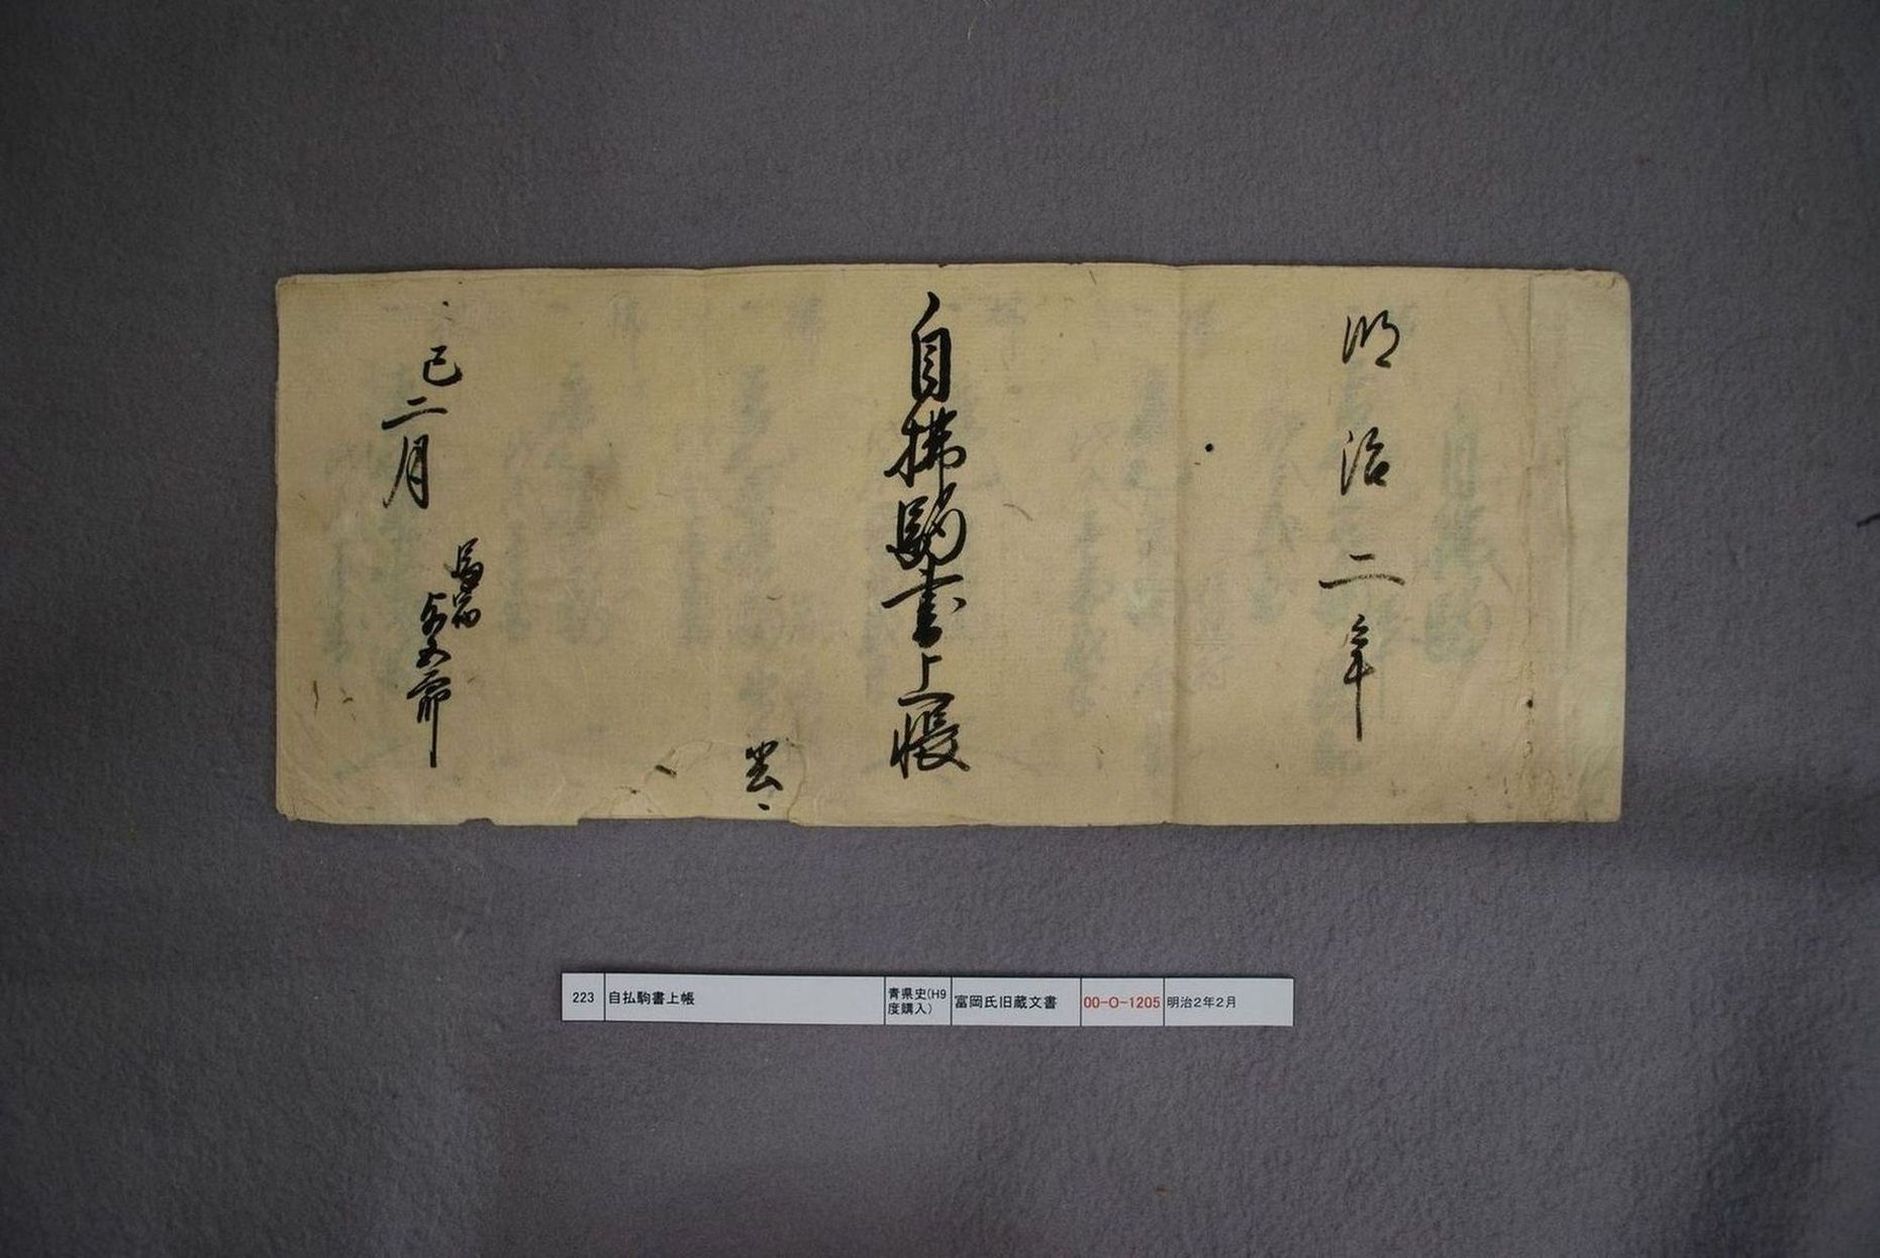 明治二年
自拂駒書上帳
巳二月
223 自払駒書上帳 青県史(H9度購入) 富岡氏旧蔵文書 00-O-1205 明治2年2月